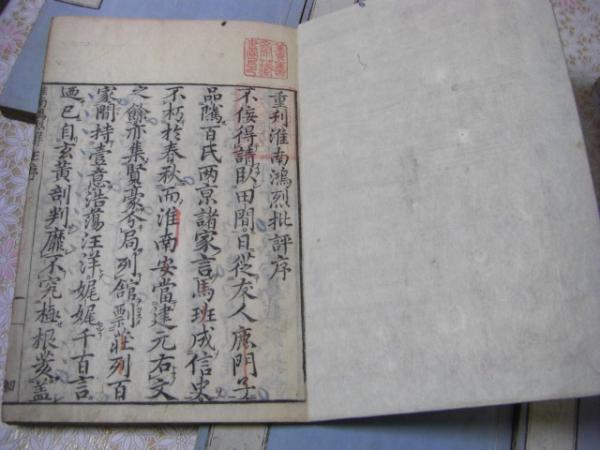 重刊淮南鴻烈批評序
不佞得請臥田間日從友人鹿門子
品隲百氏两京諸家言馬班成信史
不朽於春秋而淮南安當建元右文
之餘亦集賢豪分局列舘剽莊列百
家間持壹意浩蕩汪洋娓娓千百言
廼已自玄黄剖判靡不究極根荄蓋